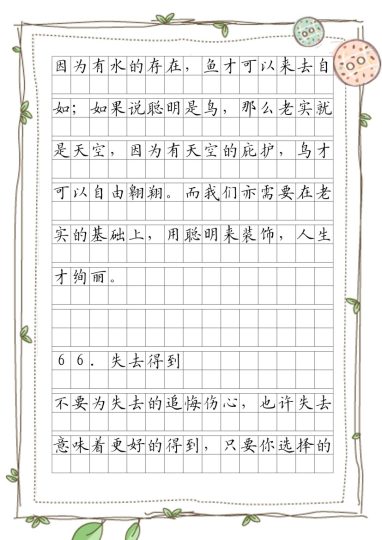 因为有水的存在，鱼才可以来去自
如；如果说聪明是鸟，那么老实就
是天空，因为有天空的庇护，鸟才
可以自由翱翔。而我们亦需要在老
实的基础上，用聪明来装饰，人生
才绚丽。
66．失去得到
不要为失去的追悔伤心，也许失去
意味着更好的得到，只要你选择的